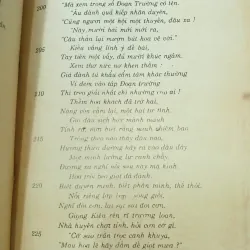 200
"Mà xem trong sổ Đoạn Trường có tên.
"Âu đành quả kiếp nhân duyên,
"Cùng người một hội một thuyền, đâu xa!
"Này mười bài mới mới ra,
"Câu thần lại mượn bút hoa vẽ vời."
205
Kiều vâng lĩnh ý đề bài,
Tay tiên một vẫy, đủ mười khúc ngâm.
Xem thơ nức nở khen thầm:
Giá đành tú khẩu cẩm tâm khác thường
Ví đem vào tập Đoạn Trường
210
Thì treo giải nhất chi nhường cho ai!
Thềm hoa khách đã trở hài,
Nàng còn cầm lại, một hai tự tình.
Gió đâu sịch bức mành mành
Tỉnh ra, mới biết rằng mình chiêm bao
215
Trông theo nào thấy đâu nào
Hương thừa dường hãy ra vào đâu đây
Một mình lưỡng lự canh chầy,
Đường xa nghĩ nỗi
Hoa trôi
220
Biết duyên mình, biết phận mình, thế thôi!
Nỗi riêng lớp lớp sóng giồi,
Nghĩ đòi cơn, lại sụt sùi đòi cơn,
Giọng Kiều rền rĩ trướng loan,
Nhà huyên chợt tỉnh, hỏi cơn cớ gì.
225
"Cớ sao trằn trọc canh khuya,
"Màu hoa lê hãy dầm dề giọt mưa?"